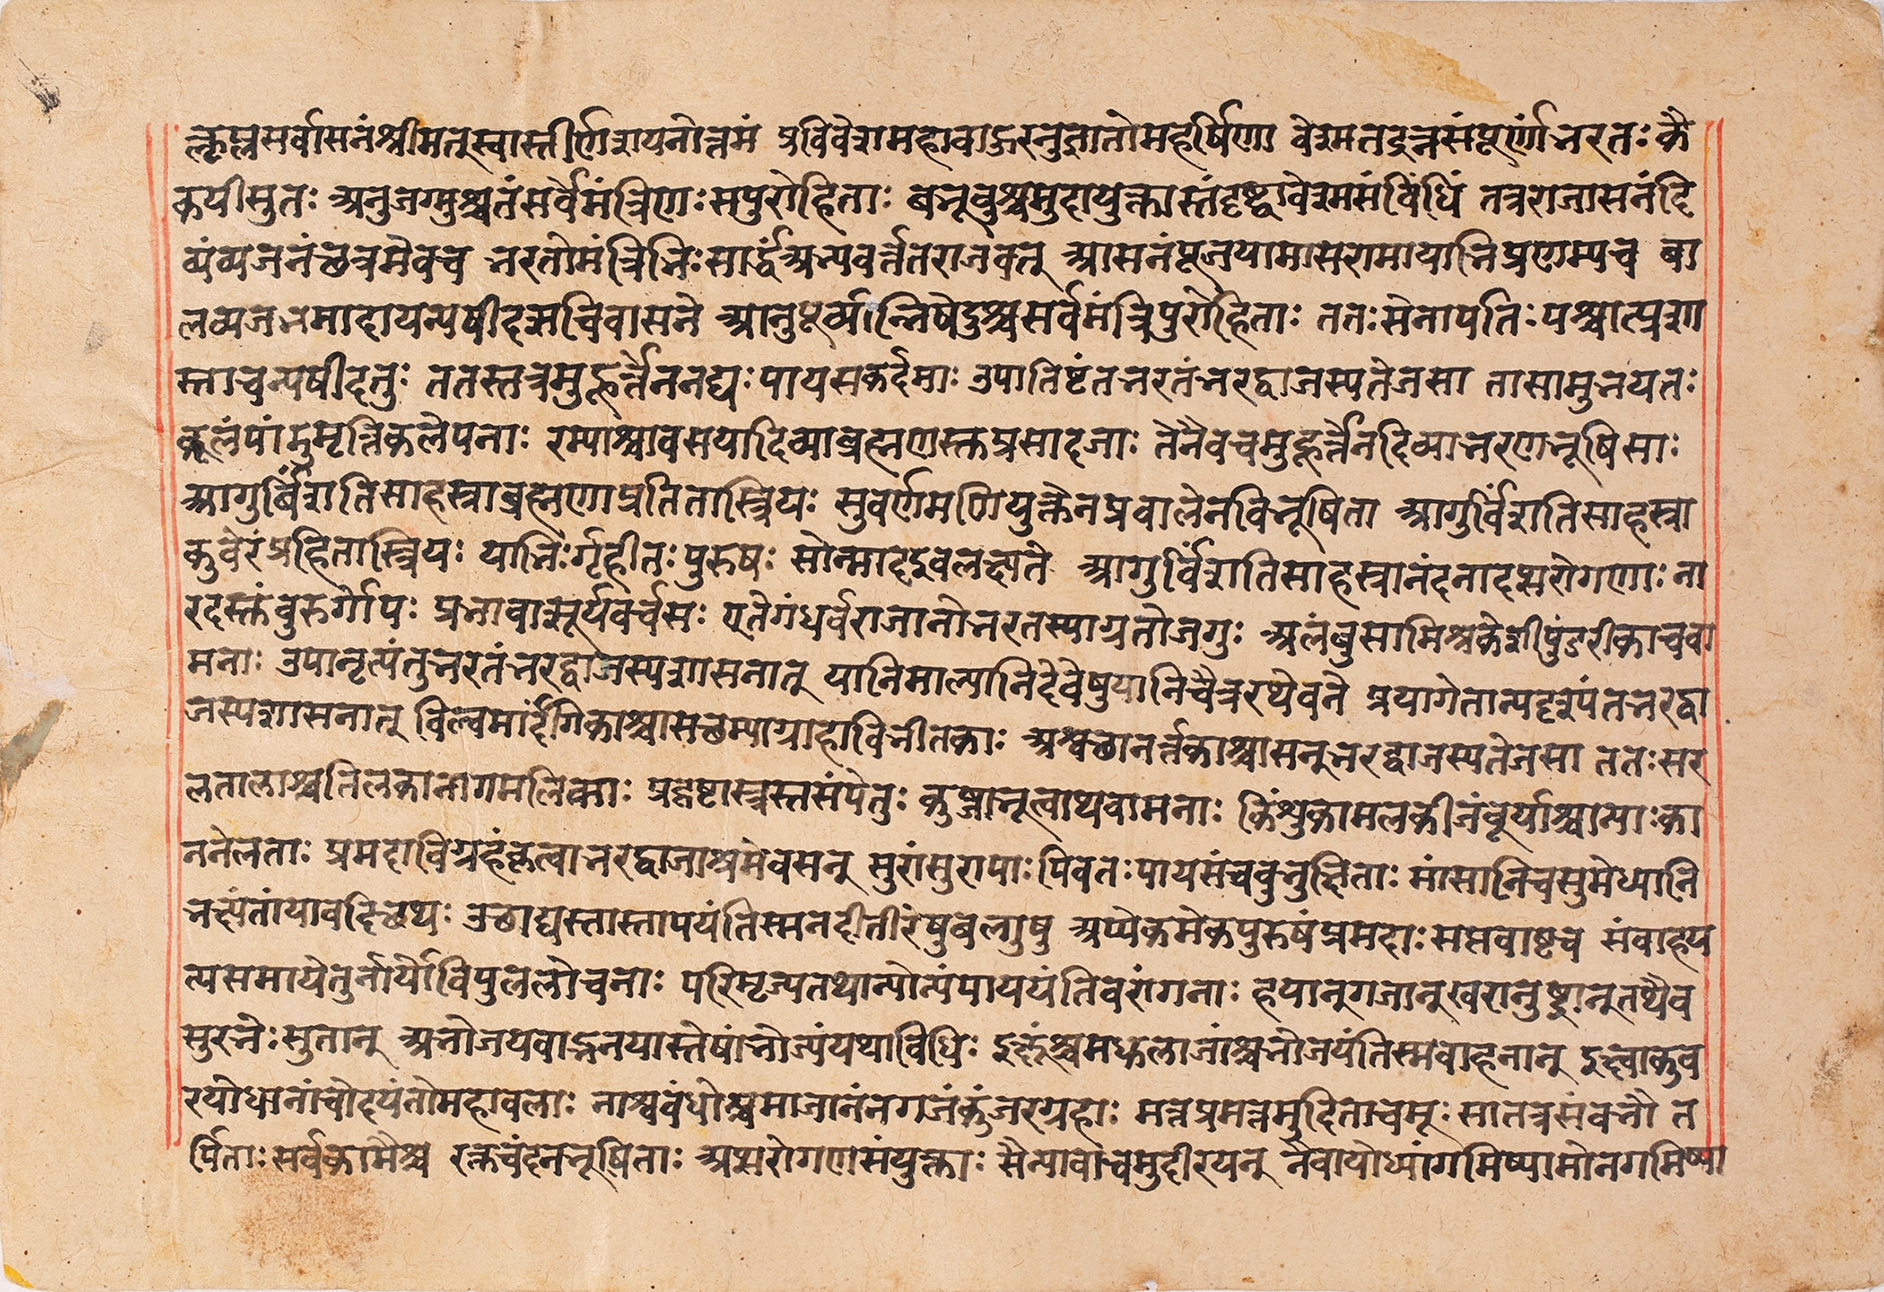 त्कृप्तसर्वासनंश्रीमत्स्वास्तीर्णशयनोत्तमं प्रविवेशमहाबाहुरनुज्ञातोमहर्षिणा वेश्मतद्रत्नसंपूर्णंभरतः कै
कयीसुतः अनुजग्मुश्चतंसर्वेमंत्रिणः सपुरोहिताः बभूवुश्चमुदायुक्तास्तंदृष्ट्वावेश्मसंविधिं तत्रराजासनंदि
व्यंव्यजनंछत्रमेवच भरतोमंत्रिभिः सार्द्धंअभ्यवर्त्ततराजवत् आसनंपूजयामासरामायाभिप्रणम्यच बा
लव्यजनमादायन्यषीदसचिवासने आनुपूर्व्यान्निषेदुश्चसर्वेमंत्रिपुरोहिताः ततः सेनापतिः पश्चात्प्रशा
स्ताचन्यषीदतुः ततस्तत्रमुहूर्त्तेननद्यः पायसकर्दमाः उपातिष्टंतभरतंभरद्वाजस्यतेजसा तासामुभयतः
कूलंपांडुमृत्तिकलेपनाः रम्याश्चावसथादिव्याब्रह्मणस्तप्रसादजाः तेनैवचमुहूर्त्तेनदिव्याभरणभूषिसाः
आगुर्विंशतिसाहस्त्राब्रह्मणाप्रतितास्त्रियः सुवर्णमणियुक्तेनप्रवालेनविभूषिता आगुर्विंशतिसाहस्त्रा
कुवेरंप्रहितास्त्रियः याभिःर्गृहीतः पुरुषः सोन्मादइवलक्ष्यते आगुर्विंशतिसाहस्त्रानंदनादप्सरोगणाः ना
रदस्तंबुरुर्गोपः प्रभावात्सूर्यवर्च्चसः एतेगंधर्वराजानोभरतस्याग्रतोजगुः अलंबुसामिश्रकेशीपुंडरीकाचवा
मनाः उपानृत्यंतुभरतंभरद्वाजस्यशासनात् यानिमाल्यानिदेवेषुयानिचैत्ररथेवने प्रयागेतान्यदृश्यंतभरद्वा
जस्यशासनात् विल्वमार्दंगिकाश्चासछम्याग्राहाविभीतकाः अश्वछानर्त्तकाश्चासन्भरद्वाजस्यतेजसा ततः सर
लतालाश्चतिलकानागमलिकाः प्रहृष्टास्त्रस्तसंपेतुः कुब्जाभूत्वाथवामनाः किंशुकामलकीजंबूर्याश्चान्याः का
ननेलताः प्रमदाविग्रहंकृत्वाभरद्वाजाश्रमेवसन् सुरांसुरापाः पिवतः पायसंचवुभुक्षिताः मांसानिचसुमेध्यानि
भक्ष्यंतांयावदिच्छथः उछाद्यस्तास्तापयंतिस्मनदीतीरेषुवल्गुषु अप्येकमेकपुरुषंप्रमदाः सप्तवाष्टच संवाहय
त्यसमायेतुर्नार्योविपुललोचनाः परिमृज्यतथान्योन्यंपाययंतिवरांगनाः हयान्गजान्खरानुष्ट्रान्तथैव
सुरभेः सुतान् अभोजयवाहनयास्तेषांभोज्यंयथाविधिः इक्षूंश्चमधुलाजांश्चभोजयंतिस्मवाहनान् इक्ष्वाकुव
रयोधानांचोदयंतोमहावलाः नाश्ववंधोश्वमाजानंनगजंकुंजरग्रहाः मत्तप्रमत्तमुदिताचमूः सातत्रसंवभौ त
र्पिताः सर्वकामैश्च रक्तचंदनभूषिताः अप्सरोगणसंयुक्ताः सैन्यावाचमुदीरयन् नैवायोध्यांगमिष्यामोनगमिष्या